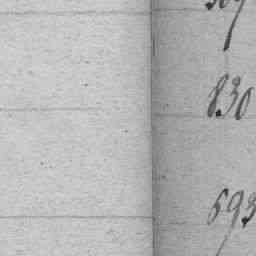 830
593